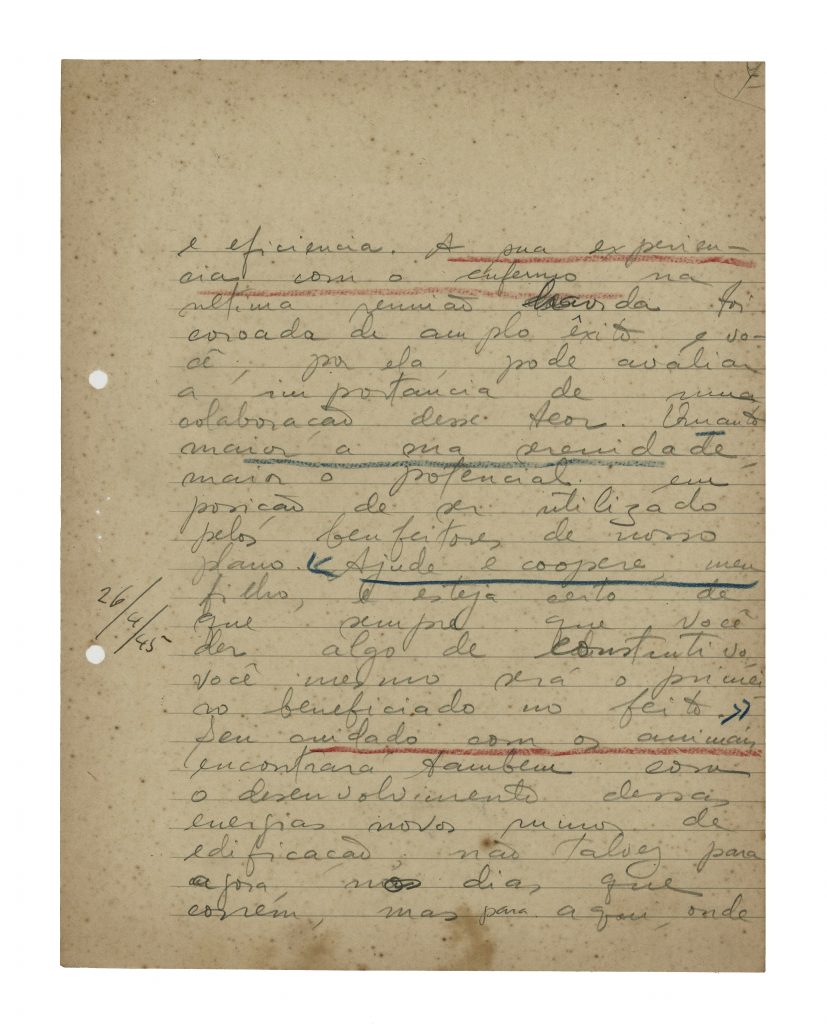 e eficiencia. A sua experien-
cia com o enfermo na
ultima reunião havida foi
coroada de amplo êxito e vo-
cê, por ela, pode avaliar
a importancia de uma
colaboração desse teor. Quanto
maior a sua serenidade,
maior o potencial em
posição de ser utilizado
pelos benfeitores de nosso
plano. « Ajude e coopere, meu
filho, e esteja certo de
que sempre que você
der algo de construtivo,
você mesmo será o primei
ro beneficiado no feito. »
Seu cuidado com os animais
encontrará tambem com
o desenvolvimento dessas
energias novos rumos de
edificação, não talvez para
agora, nos dias que
correm, mas para aqui, onde
26/4/45